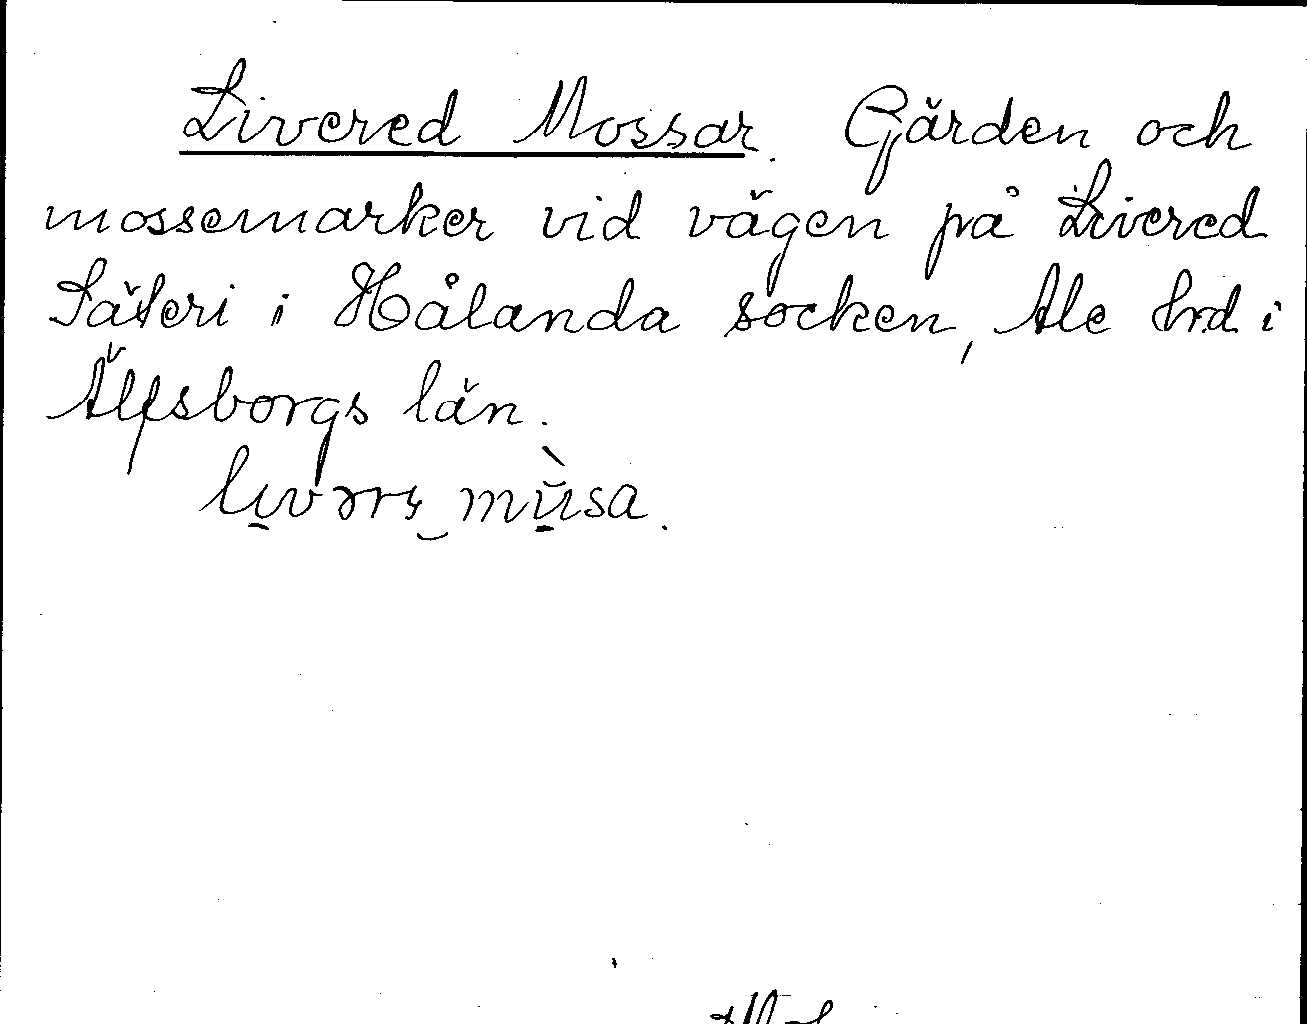 Livered Mossar. Gärden och
mossemarker vid vägen på Livered
Säteri i Hålanda socken, Ale hrd i
Älfsborgs län.